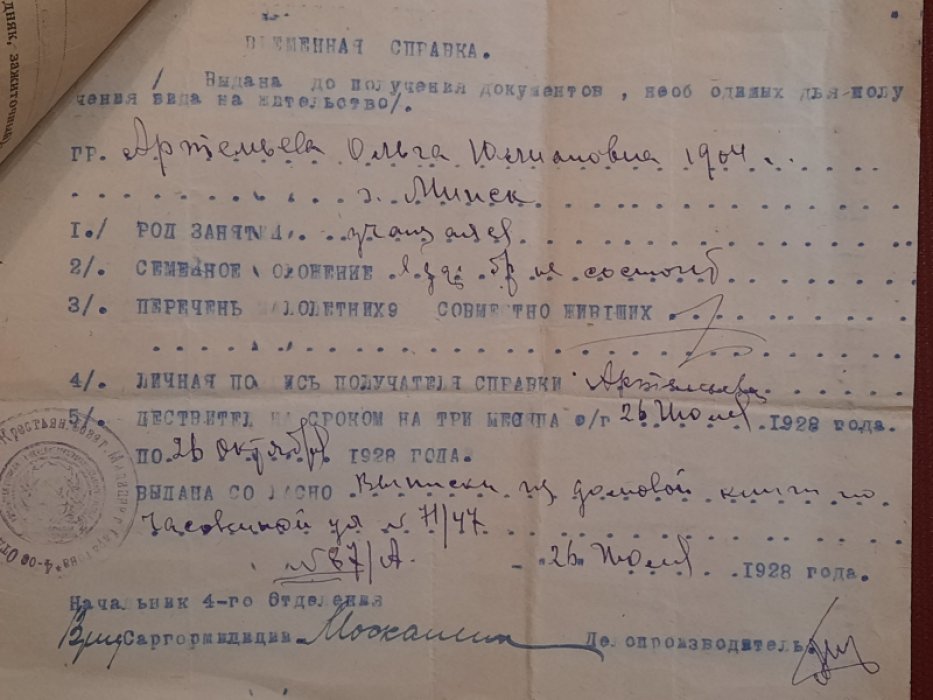 дняк, зажиточный,
ВРЕМЕННАЯ СПРАВКА.
/ Выдана до получения документов, необ одимых для полу
чения вида на жительство/.
ГР. Артемьева Ольга Юлиановна 1904
г. Минск
1./ РОД ЗАНЯТИЙ. учащаяся
2/. СЕМЕЙНОЕ ОЛОЖЕНИЕ бр не состоит
3/. ПЕРЕЧЕНЬ МАЛОЛЕТНИХ9 СОВМЕСТНО ЖИВШИХ
4/. ЛИЧНАЯ ПО ИСЬ ПОЛУЧАТЕЛЯ СПРАВКИ Артемьева
5/. ДЕСТВИТЕЛ НА СРОКОМ НА ТРИ МЕСЯЦА с/г 26 Июля 1928 года.
ПО 26 Октября 1928 ГОДА.
ВЫДАНА СО ЛАСНО Выписки из домовой книги по
Часовенной ул № 71/47
№ 87/А. 26 Июля 1928 года.
Начальник 4-го Отделения
Саргормилиции Делопроизводитель